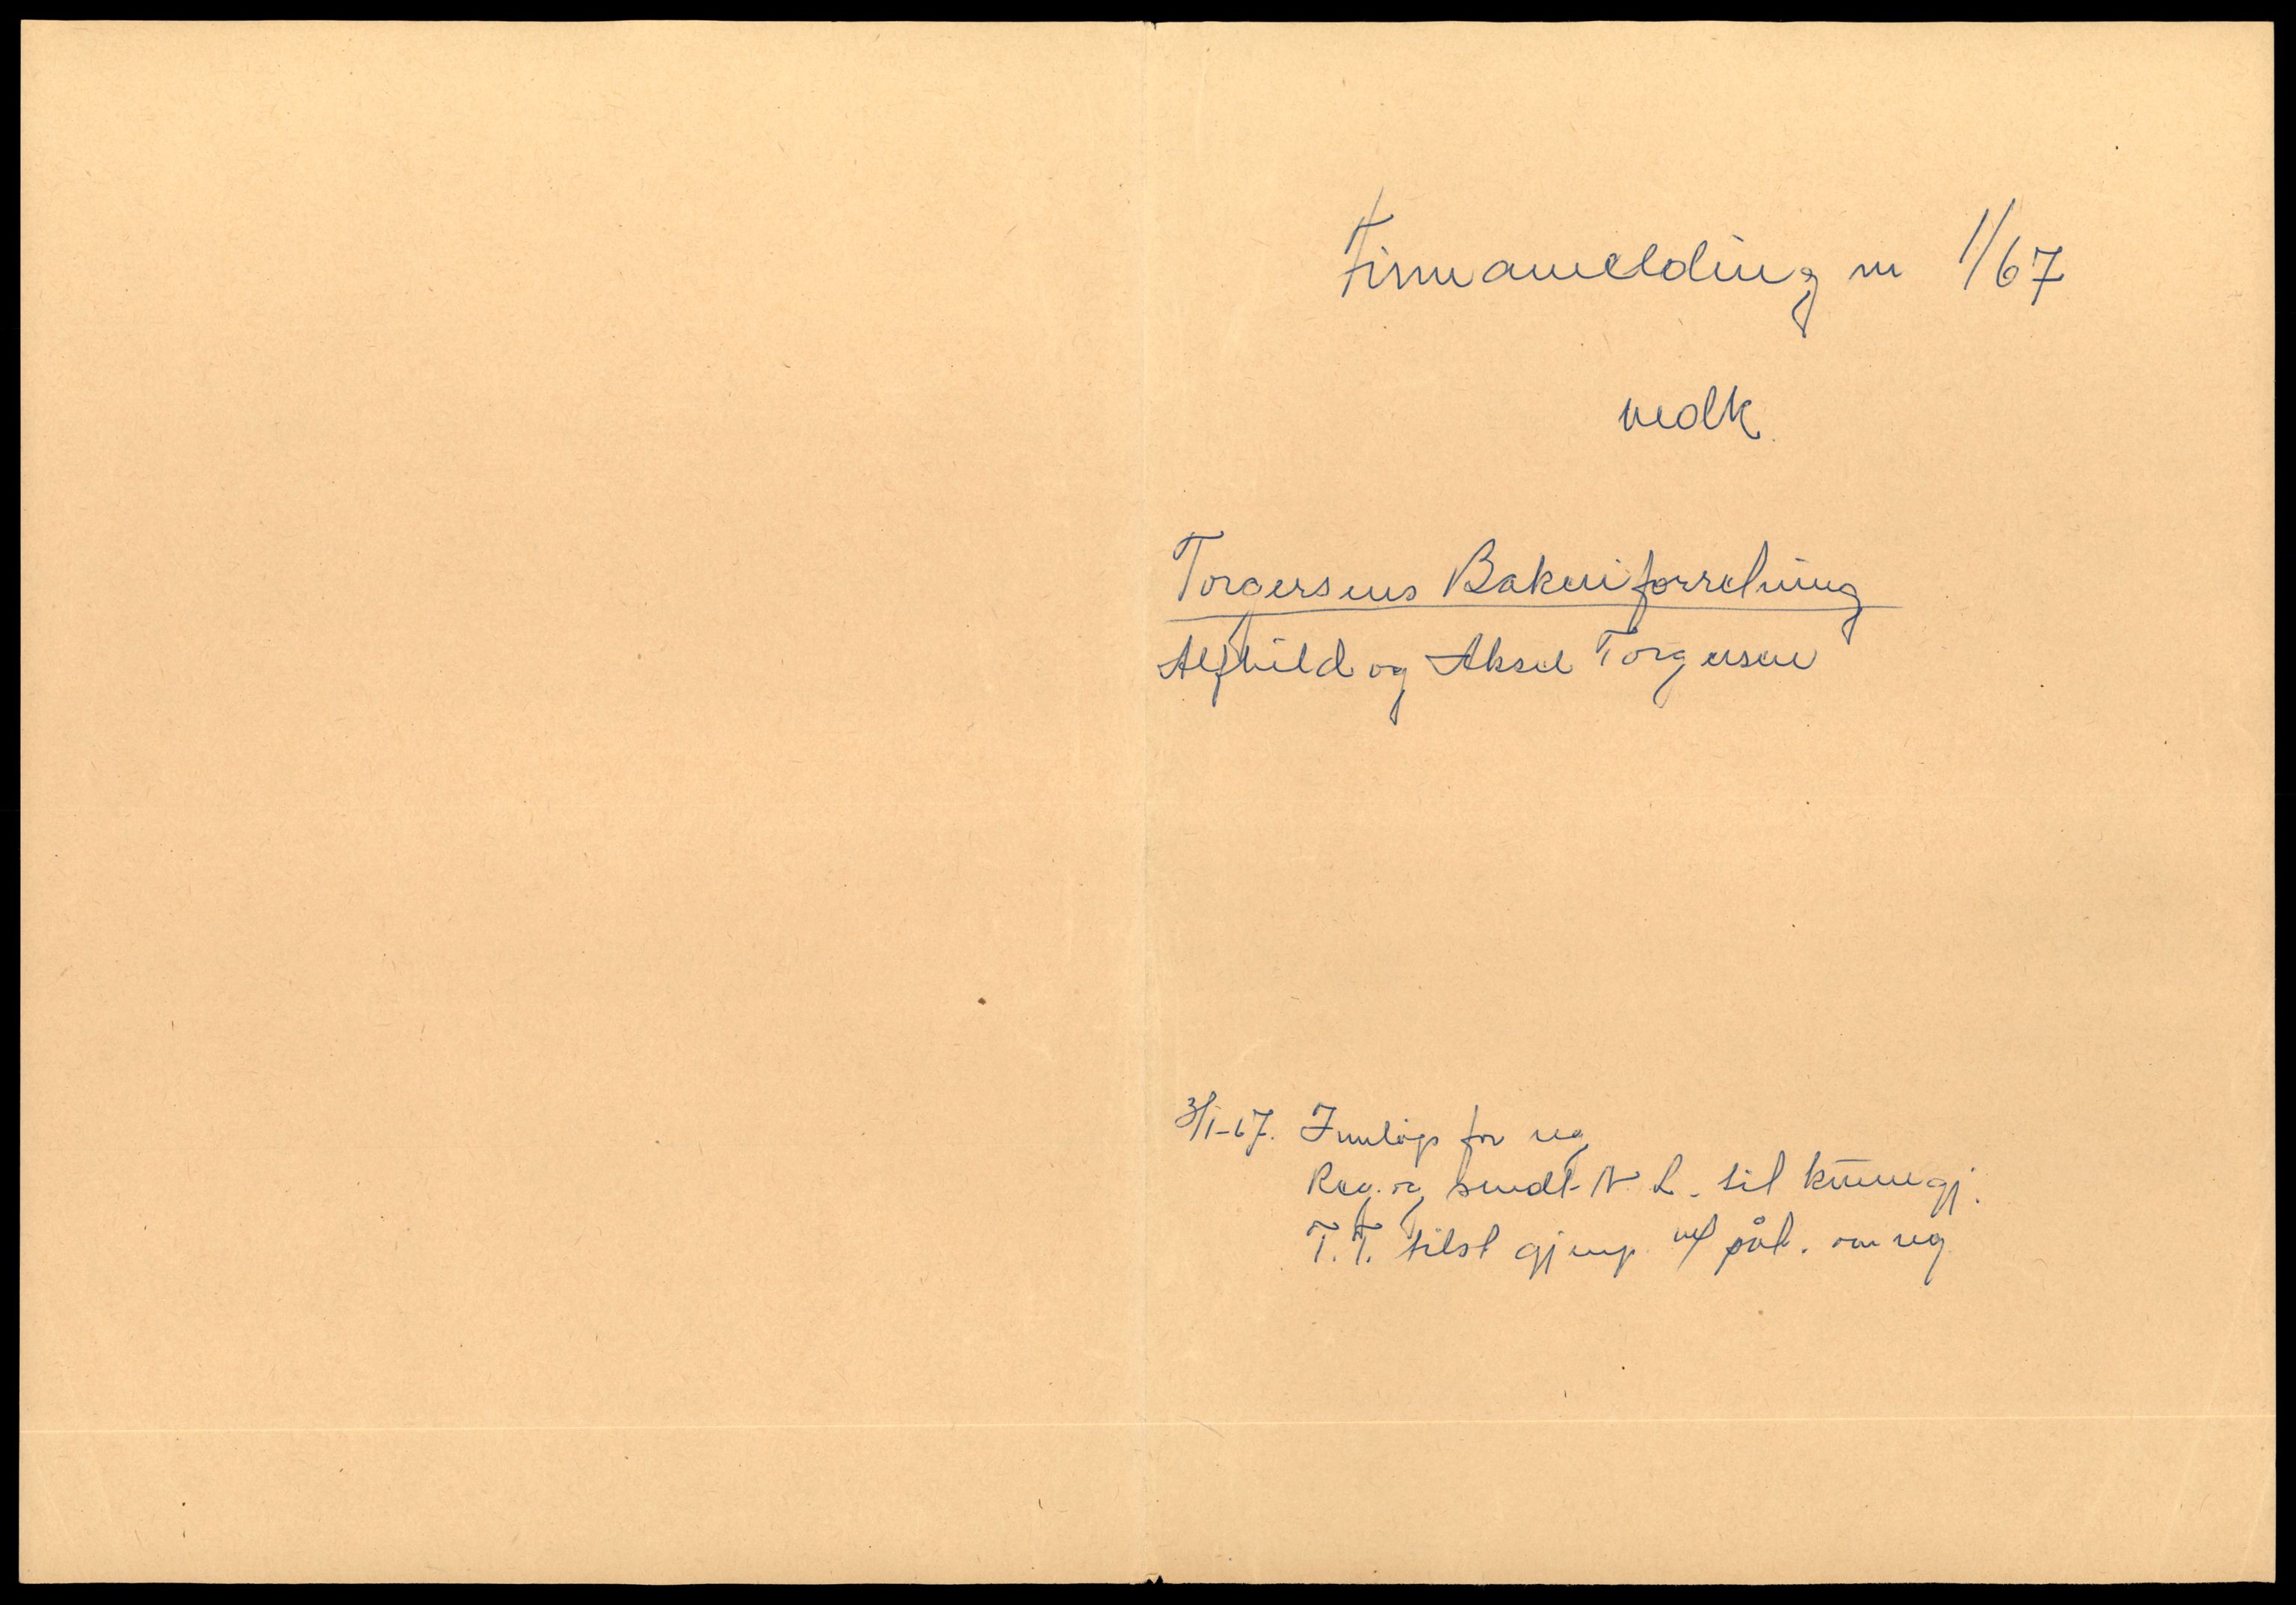 Firmamelding nr 1/67
vedk.
Torgersens Bakeriforretning
Alfhild og Aksel Torgersen
3/1-67. Innlegs for reg
Reg. og sendt N. L. til kunngj.
T.T. tilst gjenp. m/ påt. om reg